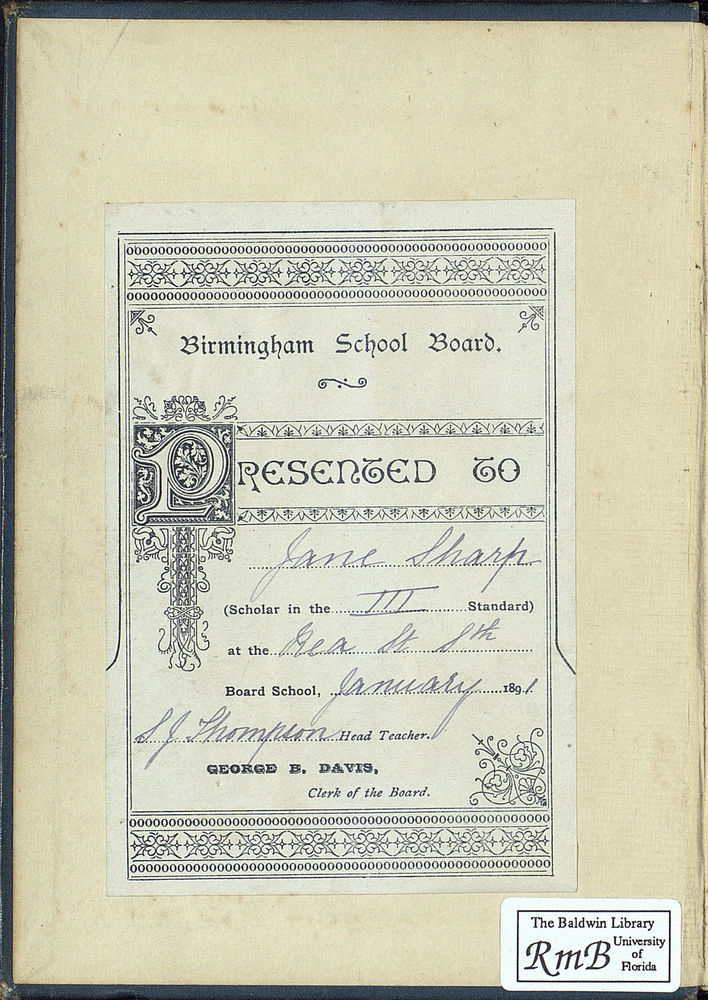 Birmingham School Board.
PRESENTED TO
Jane Sharp
(Scholar in the III Standard)
at the Rea St Sth
Board School, January 1891
S J Thompson Head Teacher.
GEORGE B. DAVIS,
Clerk of the Board.
The Baldwin Library
RmB University
of
Florida